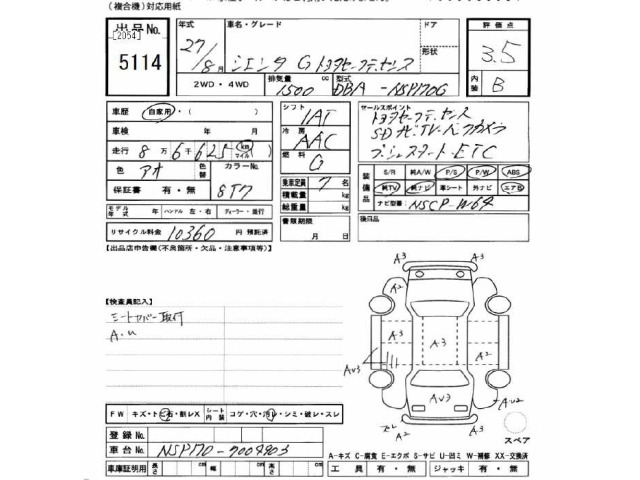 (複合機)対応用紙
出品No. [2054] 5114
年式 27/8月
車名・グレード シエンタ G トヨタセーフティセンス
ドア
形状
2WD・4WD
排気量 1500 cc
型式 DBA-NSP170G
評価点 3.5
内装 B
車歴 自家用・( )
車検 年 月
走行 8万6千625 km マイル
色 アオ 色替 カラーNo. 8T7
保証書 有・無
モデル年式 年 ハンドル 左・右 ディーラー・並行
リサイクル料金 10360 円 預託済
シフト IAT
冷房 AAC
燃料 G
乗車定員 7名
積載量 kg
総重量 kg
書類期限
月 日
セールスポイント
トヨタセーフティセンス
SDナビTV・バックカメラ
プッシュスタート・ETC
装備品 S/R 純A/W P/S P/W ABS
純TV 純ナビ 革シート 外ナビ エアB
ナビ型番 NSCP-W64
後日品
【出品店申告欄(不良箇所・欠品・注意事項等)】
【検査員記入】
シートカバー取付
A.U
A3 A3
A2 A2
A3 A3 A2
AU3 AU3
A2 A.U2
A3
スペア
FW キズ・トビ石・削レX シート内装 コゲ・穴・汚レ・シミ・破レ・スレ
登録No.
車台No. NSP170-7009903
車庫証明用 長さ cm 幅 cm 高さ cm
A-キズ C-腐食 E-エクボ S-サビ U-凹ミ W-補修 XX-交換済
工具 有・無 ジャッキ 有・無